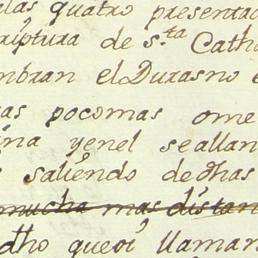 alas quatro presentad
criptura de s.ta Catha
mbran el Durasno e
as pocomas ome
ina yenel seallan
s saliendo dedhas
mucha mas distan
dho queoi llaman